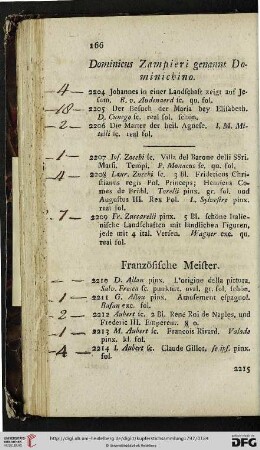 166
Dominicus Zampieri genannt Do-
minichino.
4 — 2204 Johannes in einer Landschaft zeigt auf Je-
sum. R. v. Audenaerd sc. qu. fol.
18 — 2205 Der Besuch der Maria bey Elisabeth.
D. Cunego sc. real fol. schön.
2 — 2206 Die Marter der heil. Agnese. I. M. Mi-
telli sc. real fol.
1 — 2207 Jos. Zocchi sc. Villa del Barone delli SSri.
Marsi. Templ. P. Monacus sc. qu. fol.
4 — 2208 Laur. Zucchi sc. 3 Bl. Fridericus Chri-
stianus regis Pol. Princeps; Henricus Co-
mes de Brühl. Torelli pinx. gr. fol. und
Augustus III. Rex Pol. L. Sylvestre pinx.
real fol.
7 — 2209 Fr. Zuccarelli pinx. 5 Bl. schöne Italie-
nische Landschaften mit ländlichen Figuren,
jede mit 4 ital. Versen. Wagner exc. qu.
real fol.
Französische Meister.
2210 D. Allan pinx. L'origine della pictura.
Salv. sc. punktirt. oval. gr. fol. schön.
1 — 2211 G. Allou pinx. Amusement espagnol.
Basan exc. fol.
2 — 2212 Aubert sc. 2 Bl. René Roi de Naples, und
Frederic III. Empereur. 8o.
1 — 2213 M. Aubert sc. François Rivard. Valade
pinx. kl. fol.
4 — 2214 I. Aubert sc. Claude Gillot, se ips. pinx.
fol.
2215
http://digi.ub.uni-heidelberg.de/diglit/kupferstichsammlung1797/0184
© Universitätsbibliothek Heidelberg
gefördert durch die
DFG